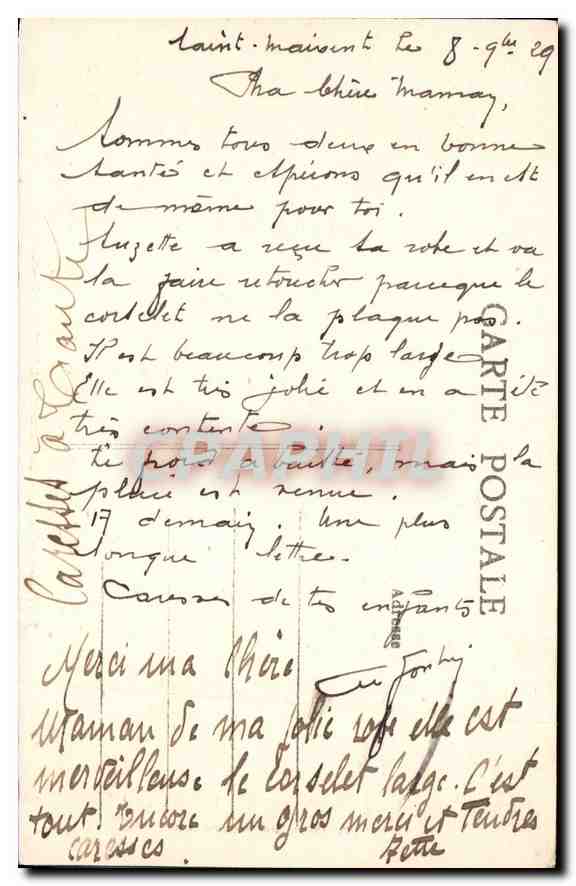 Saint-Maixent le 8-9bre 29
Ma Chère Maman,
Sommes tous deux en bonne
santé et espérons qu'il en est
de même pour toi.
Suzette a reçu sa robe et va
la faire retoucher parceque le
corselet ne la plaque pas.
Il est beaucoup trop large
Elle est très jolie et en a été
très contente.
Le froid a baissé, mais la
pluie est venue.
A demain. Une plus
longue lettre.
Caresses de tes enfants
Merci ma Chère
Maman de ma jolie robe elle est
merveilleuse le Corselet large. C'est
tout. Encore un gros merci et Tendres
caresses. Zette
Caresses à
CARTE POSTALE
Adresse
CPAPHIL